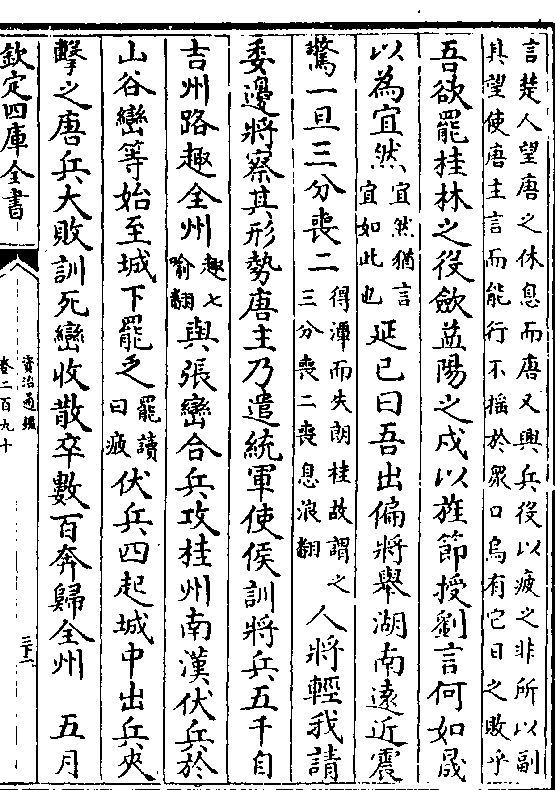 言楚人望唐之休息而唐又興兵役以疲之非所以副
其望使唐主言而能行不揺於衆口烏有它日之敗乎
吾欲罷桂林之役斂益陽之戍以旌節授劉言何如晟
以為宜然宜然猶言宜如此也延巳曰吾出偏將舉湖南遠近震
驚一旦三分喪二得潭而失朗桂故謂之三分喪二喪息浪翻人將輕我請
委邊將察其形勢唐主乃遣統軍使侯訓將兵五千自
吉州路趣全州趣七喻翻與張巒合兵攻桂州南漢伏兵於
山谷巒等始至城下罷乏罷讀曰疲伏兵四起城中出兵夾
擊之唐兵大敗訓死巒收散卒數百奔歸全州　五月
欽定四庫全書
資治通鑑
卷二百九十
三十二